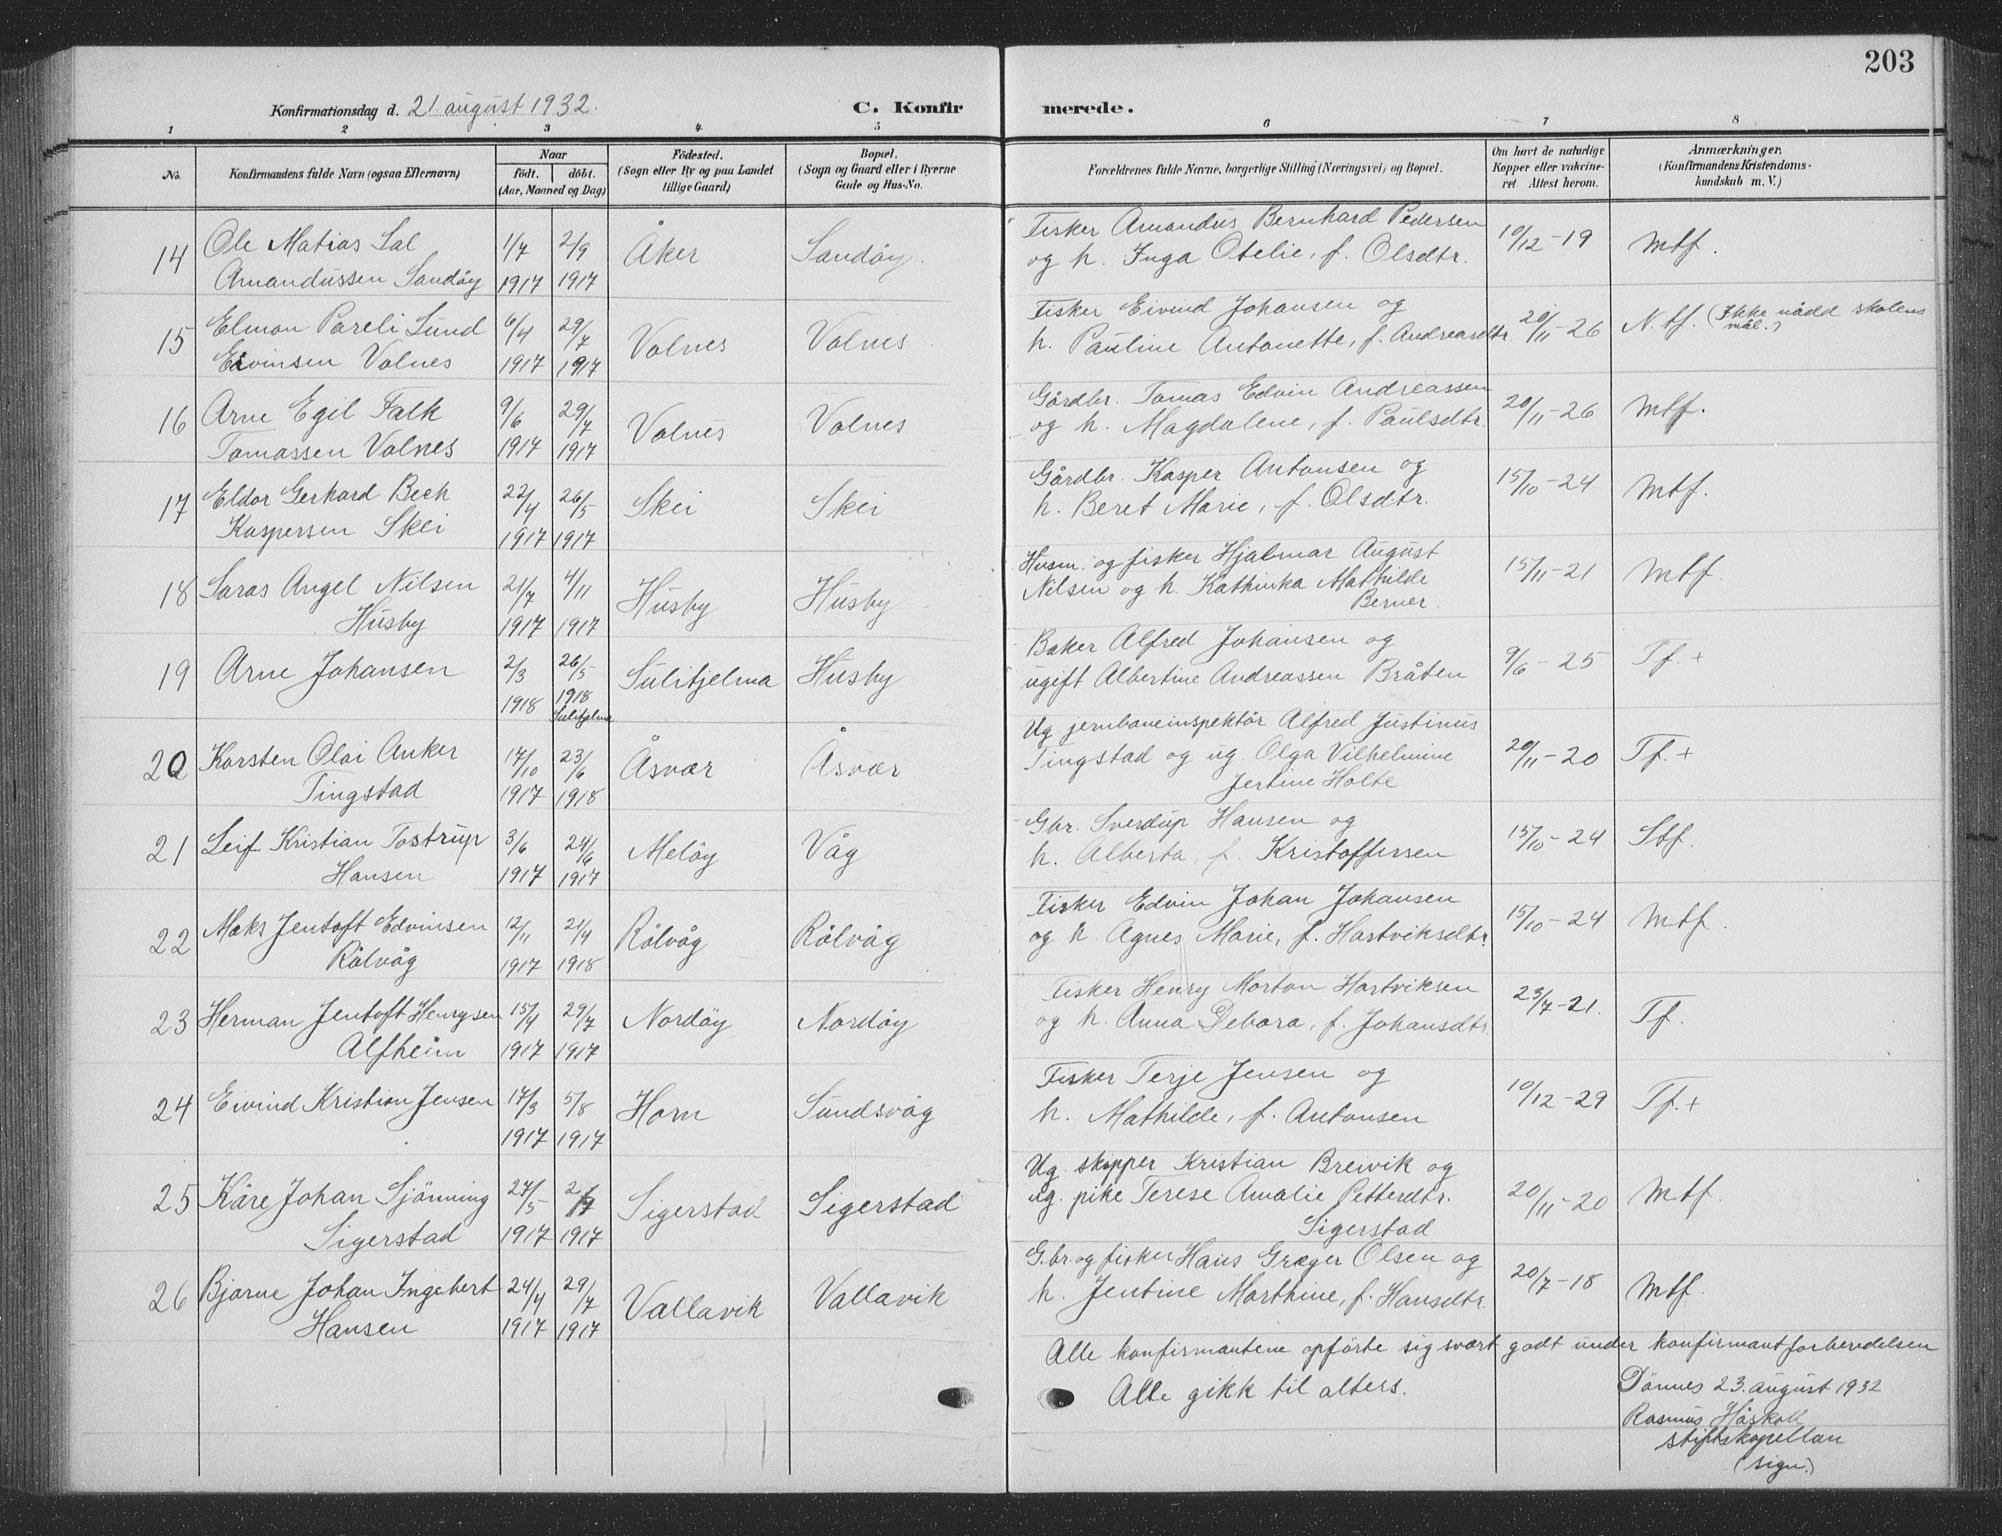 203
Konfirmationsdag d. 21. august 1932. C. Konfirmerede.
1 2 3 4 5 6 7 8
No. Konfirmandens fulde Navn (ogsaa Efternavn) Naar födt. döbt. (Aar, Maaned og Dag) Födested. (Sogn eller By og paa Landet tillige Gaard) Bopæl. (Sogn og Gaard eller i Byerne Gade og Hus-No. Forældrenes fulde Navne, borgerlige Stilling (Næringsvei) og Bopæl. Om havt de naturlige Kopper eller vakcineret Attest herom. Anmærkninger. (Konfirmandens Kristendomskundskab m. V.)
14 Ole Matias Sal 1/7 2/9 Åker Sandöy. Fisker Amandus Bernhard Pedersen 10/12-19 Mtf.
Amandussen Sandöy 1917 1917 og h. Inga Otelie, f. Olsdtr.
15 Elmon Pareli Lund 6/4 29/7 Valnes Valnes Fisker Eivind Johansen og 20/11-26 N.tf. (Ikke nådd skolens mål.)
Eivinsen Valnes 1917 1917 h. Pauline Antonette, f. Andreasdtr.
16 Arne Egil Falk 9/6 29/7 Valnes Valnes Gårdbr. Tomas Edvin Andreassen 20/11-26 Mtf.
Tomassen Valnes 1917 1917 og h. Magdalene, f. Paulsdtr.
17 Eldor Gerhard Bech 22/4 26/5 Skei Skei Gårdbr. Kasper Antonsen og 15/10-24 Mtf.
Kaspersen Skei 1917 1917 h. Beret Marie, f. Olsdtr.
18 Saras Angel Nilsen 21/7 4/11 Husby Husby Husm. og fisker Hjalmar August 15/11-21 Mtf.
Husby 1917 1917 Nilsen og h. Kathinka Mathilde
Berner.
19 Arne Johansen 2/3 26/5 Sulitjelma Husby Baker Alfred Johansen og 9/6-25 Tf.+
1918 1918 Sulitjelma ugift Albertine Andreassen Bråten
20 Karsten Olai Anker 17/10 23/6 Åsvær Åsvær Ug jernbaneinspektör Alfred Justinus 20/11-20 Tf.+
Tingstad 1917 1918 Tingstad og ug. Olga Vilhelmine
Jertine Holte
21 Leif Kristian Tostrup 3/6 24/6 Melöy Våg Gbr. Sverdup Hansen og 15/10-24 Stf.
Hansen 1917 1917 h. Alberta, f. Kristoffersen
22 Maks Jentoft Edvinsen 12/11 21/4 Rölvåg Rölvåg Fisker Edvin Johan Johansen 15/10-24 Mtf.
Rölvåg 1917 1918 og h. Agnes Marie, f. Hartviksdtr.
23 Herman Jentoft Henrysen 15/4 29/7 Nordöy Nordöy Fisker Henry Morton Hartviksen 23/7-21. Tf.
Alfheim 1917 1917 og h. Anna Debora, f. Johansdtr.
24 Eivind Kristian Jensen 17/3 5/8 Horn Sundsvåg Fisker Terje Jensen og 10/12-29 Tf.+
1917 1917 h. Mathilde, f. Antonsen
25 Kåre Johan Sjönning 27/5 Sigerstad Sigerstad Ug. skipper Kristian Breivik og 20/11-20 Mtf.
Sigerstad 1917 1917 ug. pike Terese Amalie Petterdtr.
Sigerstad
26 Bjarne Johan Ingebert 24/4 29/7 Vallavik Vallavik G.br. og fisker Hans Græger Olsen og 20/7-18 Mtf.
Hansen 1917 1917 h. Jentine Marthine, f. Hansdtr.
Alle konfirmantene opförte sig svært godt under konfirmantforberedelsen
Alle gikk til alters.
Dönnes 23. august 1932
Rasmus Håskoll
stiftskapellan
(sign.)